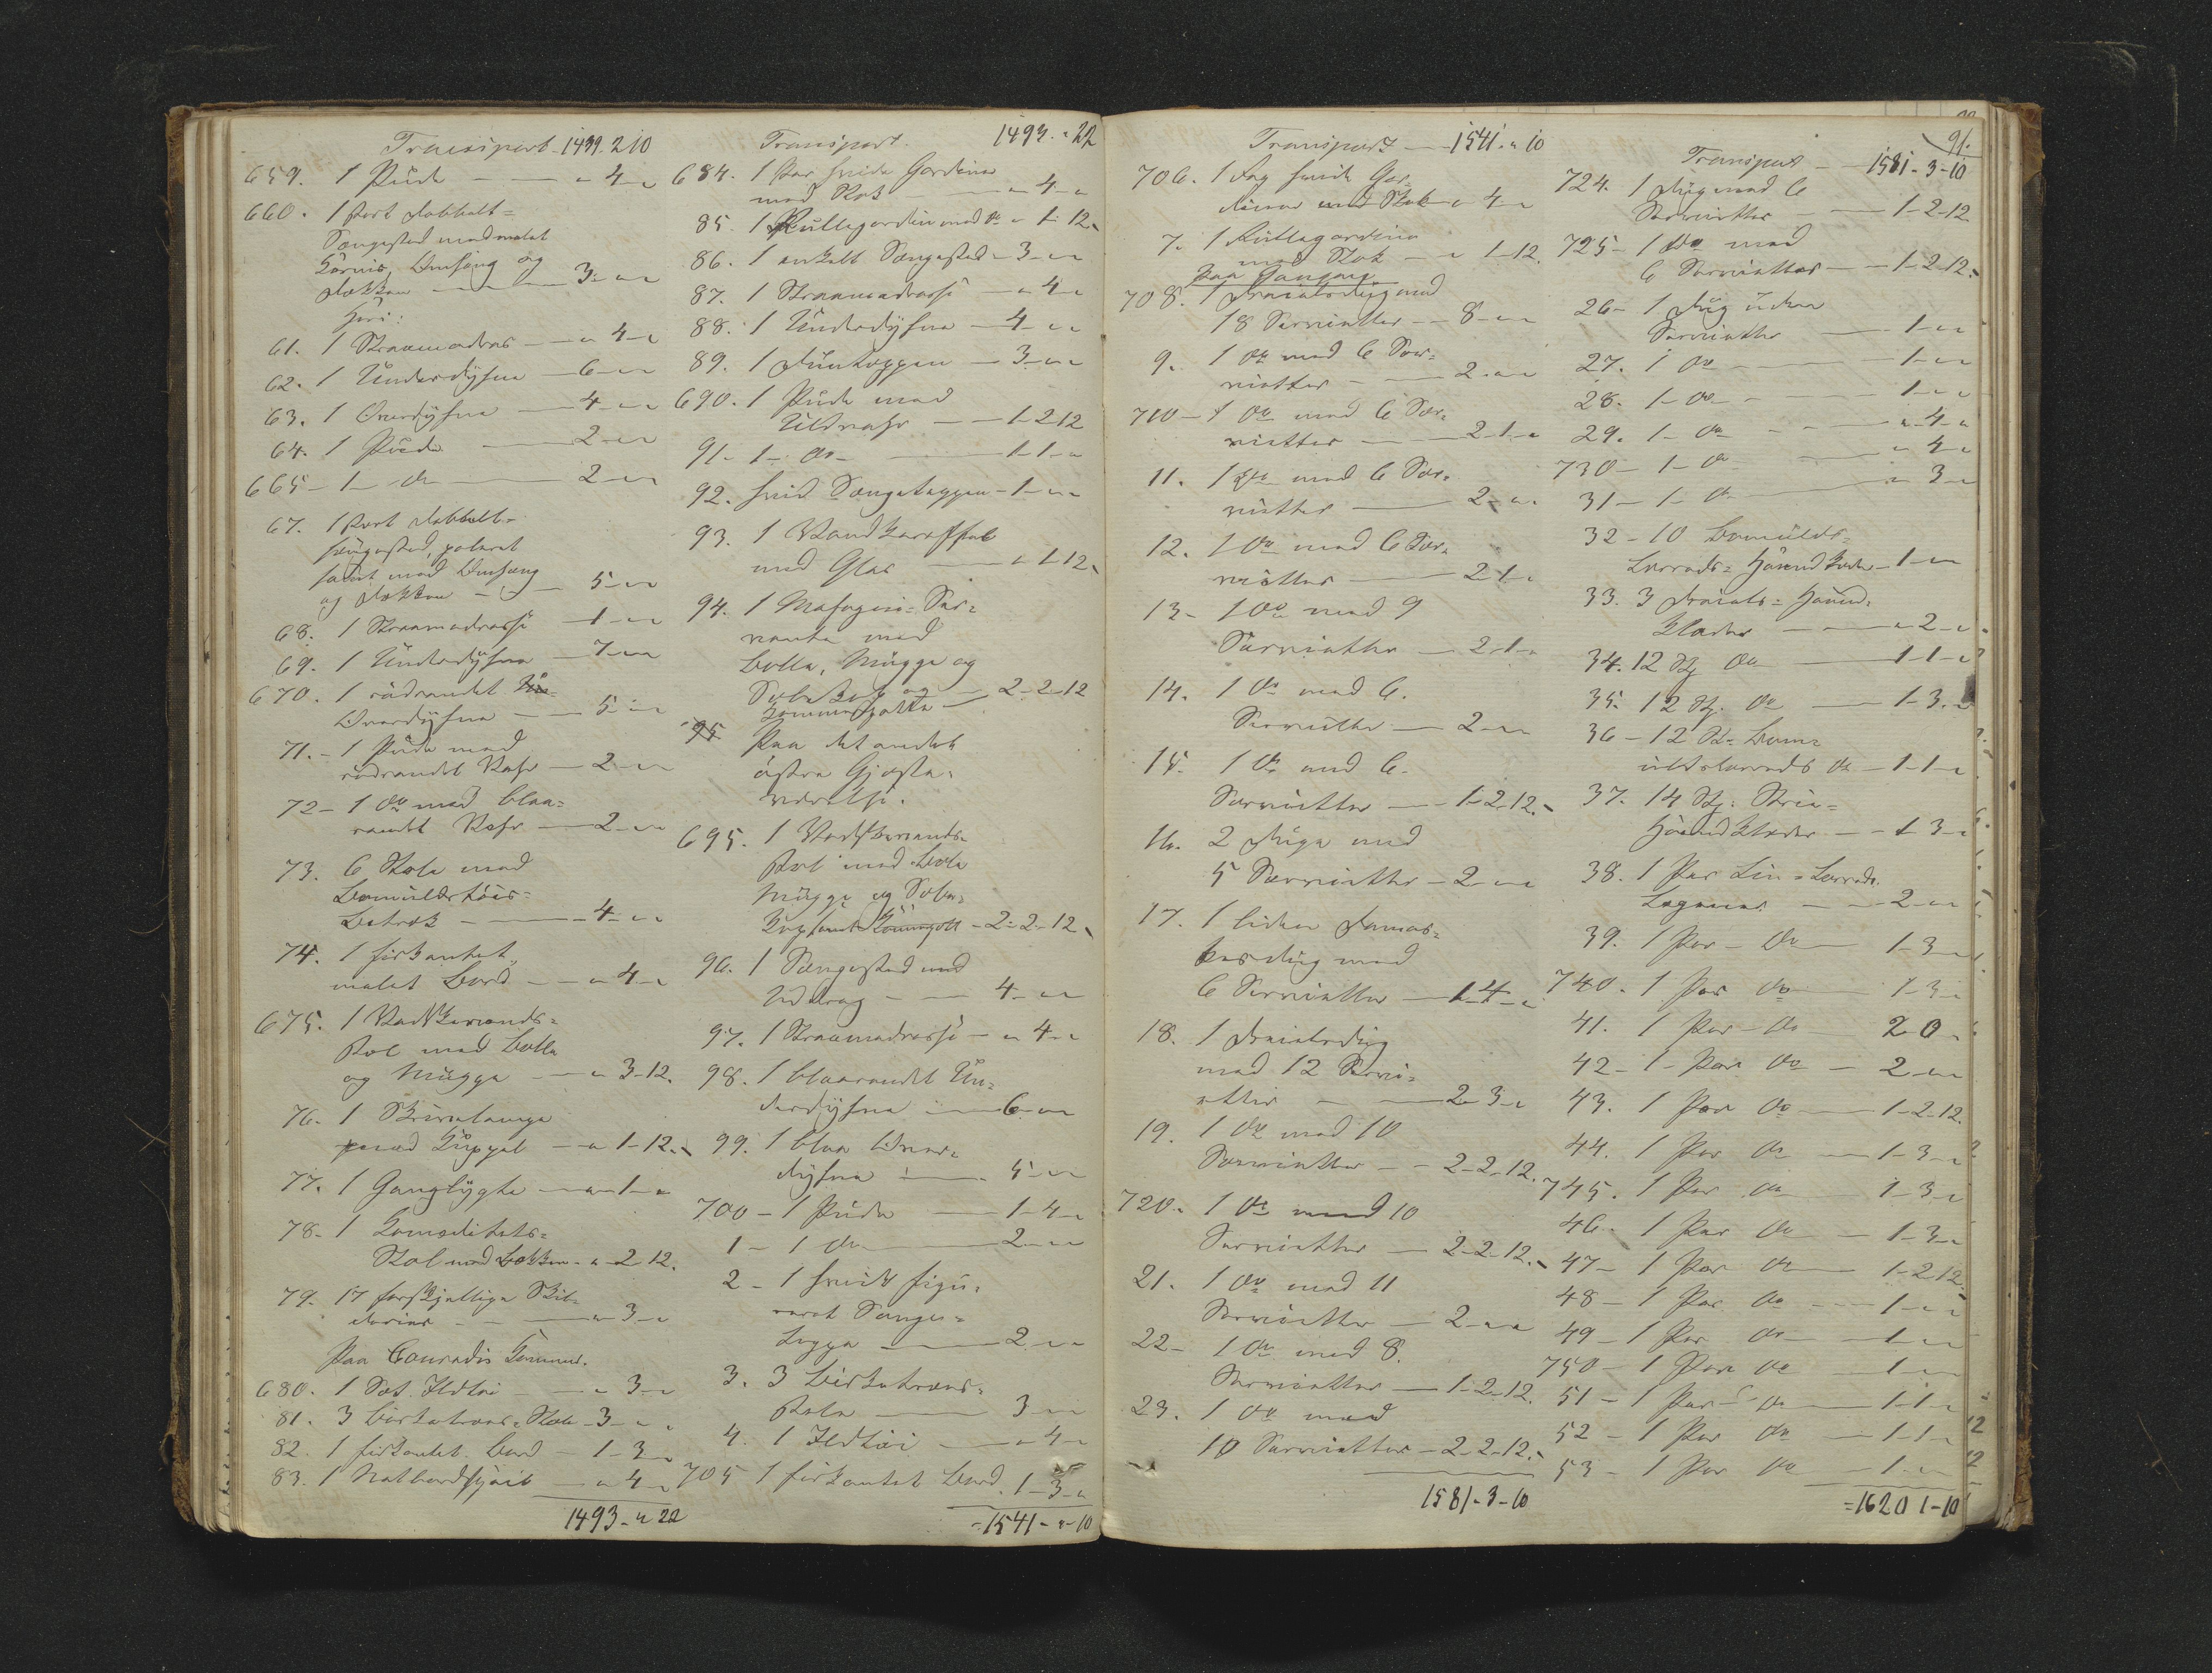 Transport 1439. 2 10
659. 1 Pude — " 4 "
660. 1 stort dobbelt=
Sængested med malet
Kornis, Omhæng og
Dækken — 3 " "
Heri:
61. 1 Straamadras — " 4 "
62. 1 Underdyhne — 6 " "
63. 1 Overdyhne — 4 " "
64. 1 Pude — 2 " "
665 – 1 – do — 2 " "
67. 1 stort dobbelt=
sængested, poleret
samt med Omhæng
og Dækken — 5 " "
68. 1 Straamadrasse — 1 " "
69. 1 Underdyhne — 7 " "
670. 1 rödrandet
Overdyhne — 5 " "
71. – 1 Pude med
rödrandet Vahr — 2 " "
72 – 1 do med blaa=
randet Vahr — 2 " "
73. 6 Stole med
Bomuldstöis=
Betræk — 4 " "
74. 1 firkantet
malet Bord — " 4 "
675. 1 Vadskevands=
stol med Bolle
og Mugge — " 3 – 12.
76. 1 Skrivelampe
med Kuppel — " 1 – 12.
77. 1 Ganglygte — " 1 "
78. 1 Comoditets=
Stol med Bækken " 2 12.
79. 17 forskjellige Skil=
derier — " 3 "
Paa Conradis Kammer.
680. 1 Sæt Ildtöi — " 3 "
81. 3 birketræes= Stole 3 " "
82. 1 firkantet Bord — 1 – 3 "
83. 1 Natbordskjæib — " 4 "
1493 – " 22
Transport. 1493. " 22
684. 1 Par hvide Gardiner
med Stok — " 4 "
85. 1 Rullegardin med do " 1 – 12.
86. 1 enkelt Sængested – 3 " "
87. 1 Straamadrasse — " 4 "
88. 1 Underdyhne — 4 " "
89. 1 Duntæppen — 3 " "
690. 1 Pude med
Uldvahr — 1 – 2 12
91 – 1 – do – — 1 – 1 – "
92. hvid Sængetæppen – 1 " "
93. 1 Vandkaraffel
med Glas — " 1 – 12.
94. 1 Mahogni= Ser=
vante med
Bolle, Mugge og
Sæbekop og — 2 – 2 – 12
Kammerpotte
95. Paa det andet
östre Gjæste=
værelse.
695. 1 Vadskevands=
stol med Bole
Mugge og Sæbe=
kop – 2 – 2 – 12.
96. 1 Sængested med
Uddrag — 4 " "
97. 1 Straamadrasse – " 4 "
98. 1 blaarandet Un=
derdyhne — 6 " "
99. 1 blaa Over=
dyhne — 5 " "
700 – 1 Pude — 1 – 4 "
1 – 1 do — 2 " "
2 – 1 hvidt figu=
reret Sænge=
tæppe — 2 " "
3. 3 Birketræes=
stole — 3 " "
4. 1 Ildtöi — " 4 "
705 1 firkantet Bord. 1 – 3 "
= 1541 – " – 10
Transport — 1541. " 10
706. 1 Fag hvide Gar=
diner med Stok " 4 "
7. 1 Rullegardin
med Stok — " 1 – 12.
Paa Gangen
708. 1 Dreielsdug med
18 Servietter — 8 " "
9. 1 do med 6 Ser=
vietter — 2 " "
710 – 1 do med 6 Ser=
vietter — 2 – 1 "
11. 1 do med 6 Ser=
vietter — 2 " "
12. 1 do med 6 Ser=
vietter — 2 – 1 "
13 – 1 do med 9
Servietter — 2 – 1 "
14. 1 do med 6.
Servietter — 2 " "
15. 1 do med 6.
Servietter — 1 – 2 – 12.
16. 2 Duge med
5 Servietter – 2 " "
17. 1 liden Damas=
kesdug med
6 Servietter — 1 – 4 – "
18. 1 Dreielsdug
med 12 Servi=
etter — 2 – 3 "
19. 1 do med 10
Servietter — 2 – 2 – 12.
720. 1 do med 10
Servietter — 2 – 2 – 12.
21. 1 do med 11
Servietter — 2 " "
22 – 1 do med 8.
Servietter — 1 – 2 – 12.
23. 1 do med
10 Servietter – 2 – 2 – 12.
1581 – 3 – 10
91.
Transport — 1581 – 3 – 10
724. 1 Dug med 6
Servietter — 1 – 2 – 12
725 – 1 do med
6 Servietter — 1 – 2 – 12.
26 – 1 Dug uden
Servietter — 1 " "
27. 1 do — 1 " "
28. 1 – do — 1 " "
29. 1 – do — " 4 "
730 – 1 – do — " 4 "
31 – 1 – do — " 3 "
32 – 10 Bomulds=
Lærreds= Haandklæder – 1 " "
33. 3 Dreiels= Haand=
klæder — " 2 "
34. 12 St do — 1 – 1 "
35. 12 St. do — 1 – 3 "
36 – 12 St. Bom=
uldslærreds do — 1 – 1 "
37. 14 St. Strie=
Haandklæder — 1 3 "
38. 1 Par Lin= Lærreds
Lagener — 2 " "
39. 1 Par – do 1 – 3 "
740. 1 Par do 1 – 3 "
41. 1 Par – do 2 0 "
42 – 1 – Par do — 2 " "
43. 1 Par do — 1 – 2 – 12.
44. 1 Par do — 1 – 3 "
745. 1 Par do 1 – 3 "
46. 1 Par do — 1 – 3 "
47 – 1 Par do 1 – 2 12
48 – 1 Par do — 1 " "
49 – 1 Par do — 1 " "
750 – 1 Par do — 1 " "
51 – 1 Par – do — 1 – 1 "
52 – 1 Par do — 1 – 1 "
53 – 1 Par do — 1 " "
= 1620 1 – 10